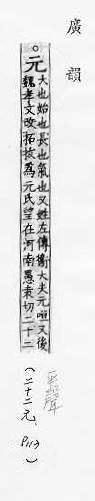 廣韻
。元
大也始也長也氣也又姓左傳衞大夫元咺又後
魏孝文改拓拔為元氏望在河南愚袁切二十二
平聲
(二十二元，P113)